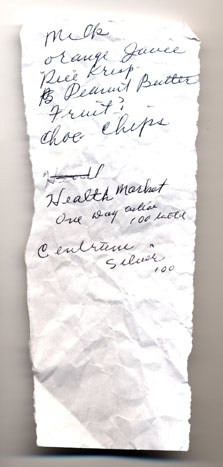 Milk
Orange Juice
Rice Krisp
Peanut Butter
Fruit?
Choc Chips
Health Market
One Day active
100 tabls
Centrum
Silver
100